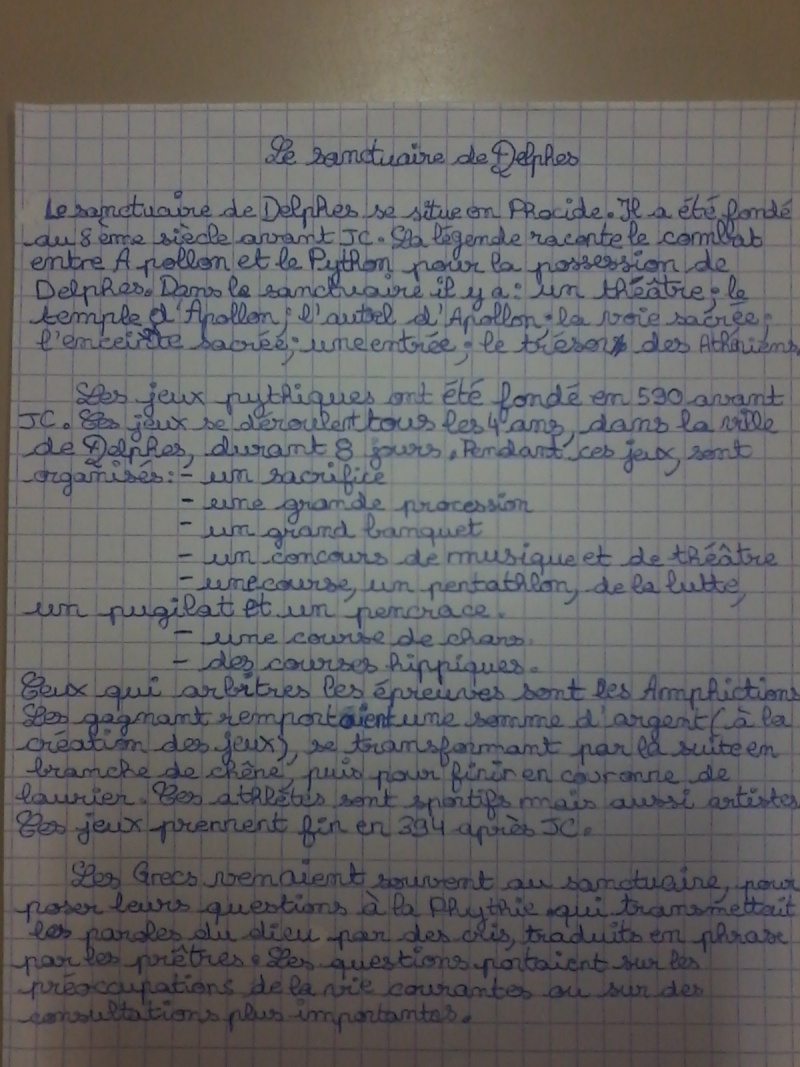 Le sanctuaire de Delphes
Le sanctuaire de Delphes se situe en Phocide. Il a été fondé
au 8 ème siècle avant JC. La légende raconte le combat
entre Apollon et le Python pour la possession de
Delphes. Dans le sanctuaire il y a : un théâtre ; le
temple d'Apollon ; l'autel d'Apollon ; la voie sacrée ;
l'enceinte sacrée ; une entrée ; le trésor des Athéniens
Les jeux pythiques ont été fondé en 590 avant
JC. Ces jeux se déroulent tous les 4 ans, dans la ville
de Delphes, durant 8 jours. Pendant ces jeux, sont
organisés : - un sacrifice
- une grande procession
- un grand banquet
- un concours de musique et de théâtre
- une course, un pentathlon, de la lutte,
un pugilat et un pencrace.
- une course de chars.
- des courses hippiques.
Ceux qui arbitres les épreuves sont les Amphictions
Les gagnant remportaient une somme d'argent (à la
création des jeux), se transformant par la suite en
branche de chêne, puis pour finir en couronne de
laurier. Ces athlétes sont sportifs mais aussi artistes
Ces jeux prennent fin en 394 après JC.
Les Grecs venaient souvent au sanctuaire, pour
poser leurs questions à la Phythie qui transmettait
les paroles du dieu par des cris, traduits en phrase
par les prêtres. Les questions portaient sur les
préoccupations de la vie courantes ou sur des
consultations plus importantes.